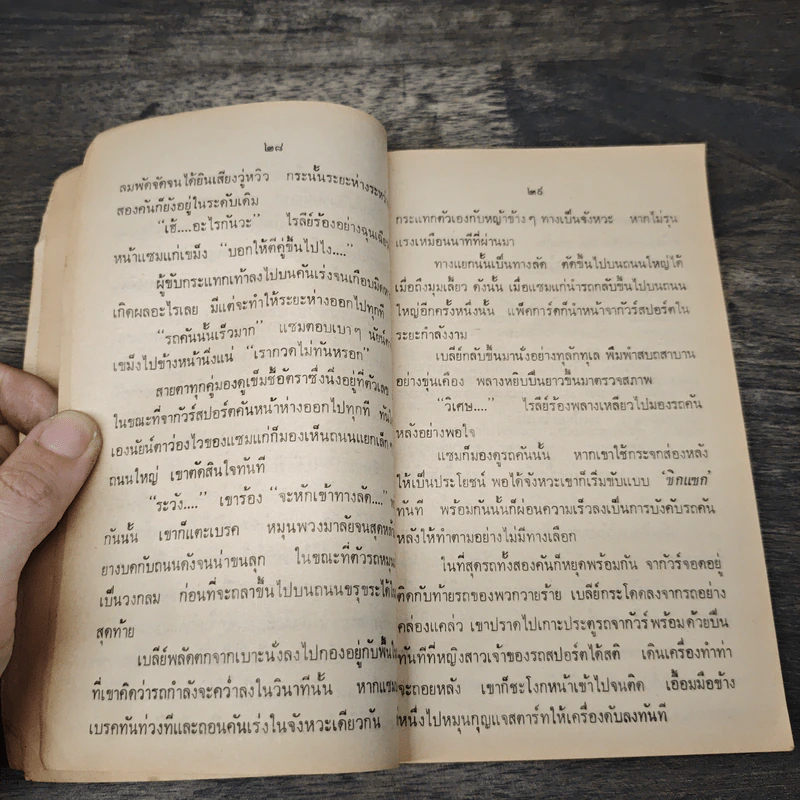 ๒๘
ลมพัดจัดจนได้ยินเสียงวู่หวิว กระนั้นระยะห่างระหว่าง
สองคันก็ยังอยู่ในระดับเดิม
“เฮ้....อะไรกันวะ” ไรลีย์ร้องอย่างฉุนเฉียว
หน้าแซมแก่เขม็ง “บอกให้ตีคู่ขึ้นไปไง....”
ผู้ขับกระแทกเท้าลงไปบนคันเร่งจนเกือบมิด
เกิดผลอะไรเลย มีแต่จะทำให้ระยะห่างออกไปทุกที
“รถคันนั้นเร็วมาก” แซมตอบเบาๆ นัยน์ตา
เขม็งไปข้างหน้านิ่งแน่ “เรากวดไม่ทันหรอก”
สายตาทุกคู่มองดูเข็มชี้อัตราซึ่งนิ่งอยู่ที่ตัวเลข
ในขณะที่จากัวร์สปอร์ตคันหน้าห่างออกไปทุกที
เองนัยน์ตาว่องไวของแซมแก่ก็มองเห็นถนนแยกเล็กๆ
ถนนใหญ่ เขาตัดสินใจทันที
“ระวัง....” เขาร้อง “จะหักเข้าทางลัด....”
กันนั้น เขาก็แตะเบรค หมุนพวงมาลัยจนสุด
ยางบดกับถนนดังจนน่าขนลุก ในขณะที่ตัวรถหมุน
เป็นวงกลม ก่อนที่จะถลาขึ้นไปบนถนนขรุขระได้ใน
สุดท้าย
เบลีย์พลัดตกจากเบาะนั่งลงไปกองอยู่กับพื้น
ที่เขาคิดว่ารถกำลังจะคว่ำลงในวินาทีนั้น หากแซม
เบรคทันท่วงทีและถอนคันเร่งในจังหวะเดียวกัน
๒๙
กระแทกตัวเองกับหญ้าข้างๆ ทางเป็นจังหวะ หากไม่รุน
แรงเหมือนนาทีที่ผ่านมา
ทางแยกนั้นเป็นทางลัด ตัดขึ้นไปบนถนนใหญ่ได้
เมื่อถึงมุมเลี้ยว ดังนั้น เมื่อแซมแก่นำรถกลับขึ้นไปบนถนน
ใหญ่อีกครั้งหนึ่งนั้น แพ็คการ์ดก็นำหน้าจากัวร์สปอร์ตใน
ระยะกำลังงาม
เบลีย์กลับขึ้นมานั่งอย่างทุลักทุเล พึมพำสบถสาบาน
อย่างขุ่นเคือง พลางหยิบปืนยาวขึ้นมาตรวจสภาพ
“วิเศษ....” ไรลีย์ร้องพลางเหลียวไปมองรถคัน
หลังอย่างพอใจ
แซมก็มองดูรถคันนั้น หากเขาใช้กระจกส่องหลัง
ให้เป็นประโยชน์ พอได้จังหวะเขาก็เริ่มขับแบบ ‘ซิกแซก’
ทันที พร้อมกันนั้นก็ผ่อนความเร็วลงเป็นการบังคับรถคัน
หลังให้ทำตามอย่างไม่มีทางเลือก
ในที่สุดรถทั้งสองคันก็หยุดพร้อมกัน จากัวร์จอดอยู่
ติดกับท้ายรถของพวกวายร้าย เบลีย์กระโดดลงจากรถอย่าง
คล่องแคล่ว เขาปราดไปเกาะประตูรถจากัวร์พร้อมด้วยปืน
ทันทีที่หญิงสาวเจ้าของรถสปอร์ตได้สติ เดินเครื่องทำท่า
จะถอยหลัง เขาก็ชะโงกหน้าเข้าไปจนติด เอื้อมมือข้าง
หนึ่งไปหมุนกุญแจสตาร์ทให้เครื่องดับลงทันที